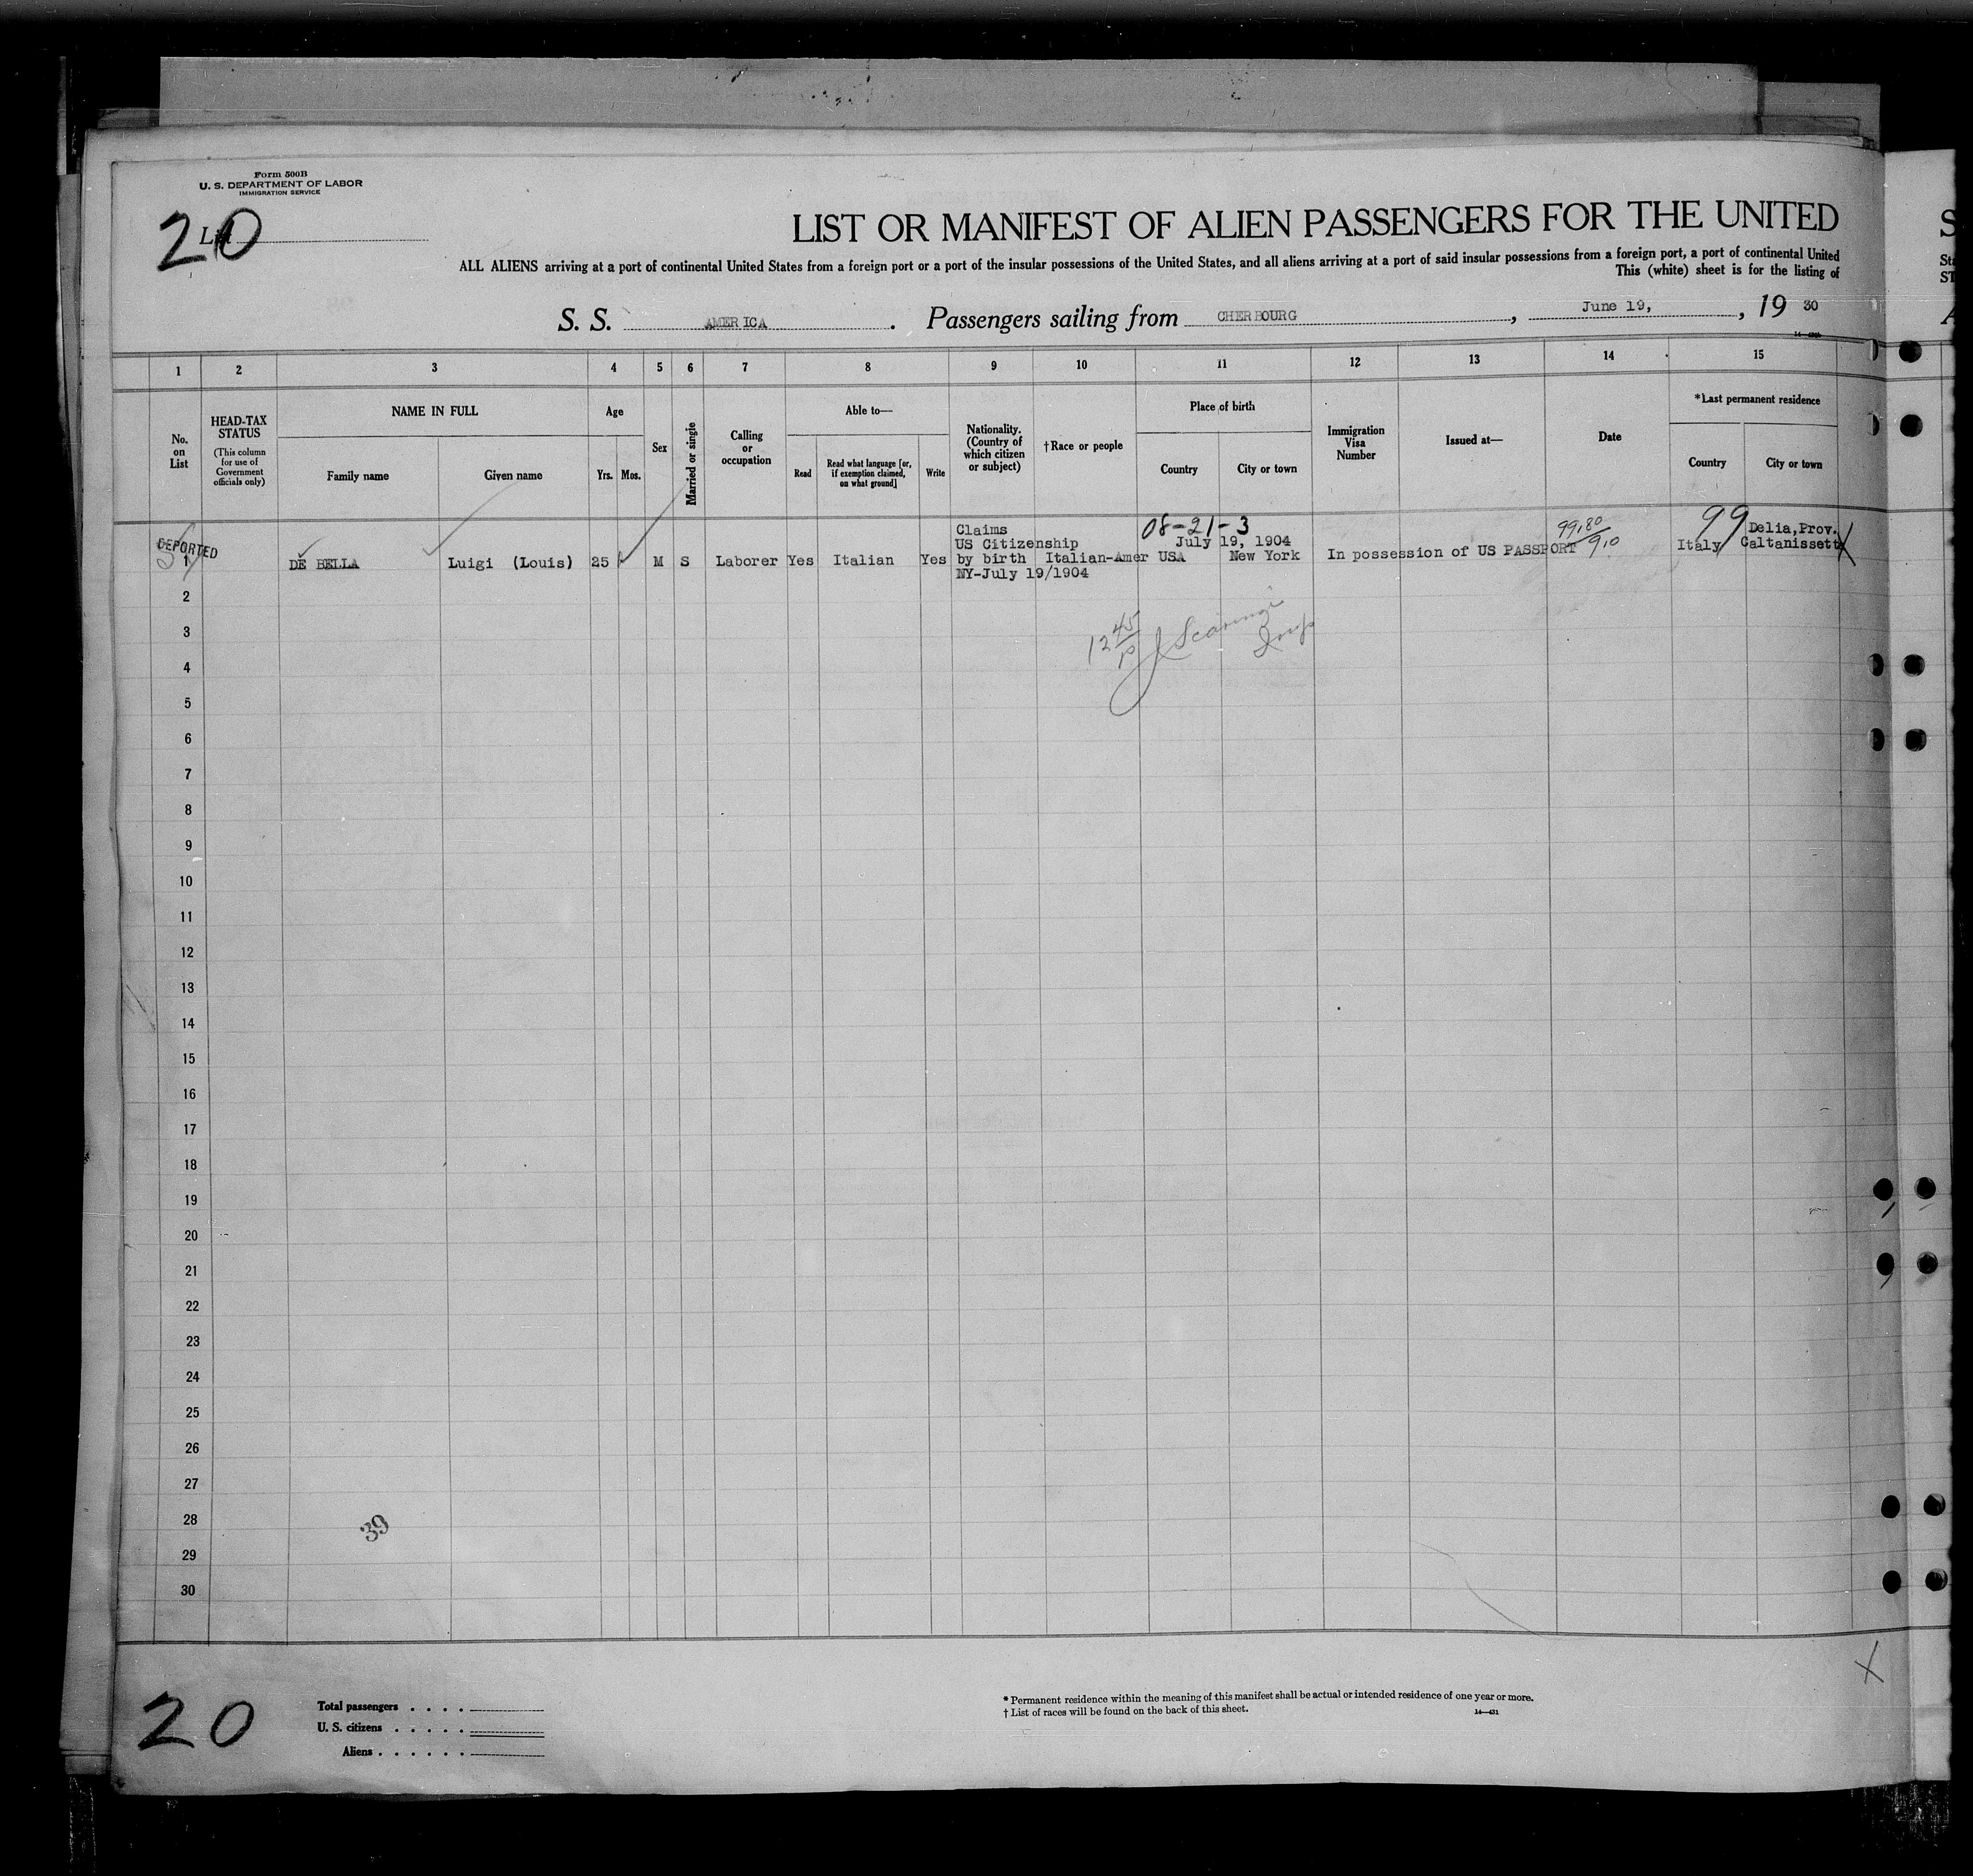 Form 500B
U. S. DEPARTMENT OF LABOR
IMMIGRATION SERVICE
20
List
LIST OR MANIFEST OF ALIEN PASSENGERS FOR THE UNITED
ALL ALIENS arriving at a port of continental United States from a foreign port or a port of the insular possessions of the United States, and all aliens arriving at a port of said insular possessions from a foreign port, a port of continental United
This (white) sheet is for the listing of
S. S. AMERICA. Passengers sailing from CHERBOURG, June 19, , 19 30
1 2 3 4 5 6 7 8 9 10 11 12 13 14 15
No. on List
HEAD-TAX STATUS
(This column for use of Government officials only)
NAME IN FULL
Family name
Given name
Age
Yrs. Mos.
Sex
Married or single
Calling or occupation
Able to—
Read
Read what language [or, if exemption claimed, on what ground]
Write
Nationality. (Country of which citizen or subject)
†Race or people
Place of birth
Country
City or town
Immigration Visa Number
Issued at—
Date
*Last permanent residence
Country
City or town
DEPORTED
Claims
US Citizenship
08-21-3
July 19, 1904
99,80
9,10
99
Delia,Prov.
1 DE BELLA Luigi (Louis) 25 M S Laborer Yes Italian Yes by birth Italian-Amer USA New York In possession of US PASSPORT Italy Caltanissetta
NY-July 19/1904
2
3
12 45
P
4
5
6
7
8
9
10
11
12
13
14
15
16
17
18
19
20
21
22
23
24
25
26
27
28
39
29
30
20
Total passengers . . . .
U. S. citizens . . . . .
Aliens . . . . . .
* Permanent residence within the meaning of this manifest shall be actual or intended residence of one year or more.
† List of races will be found on the back of this sheet.
14—431